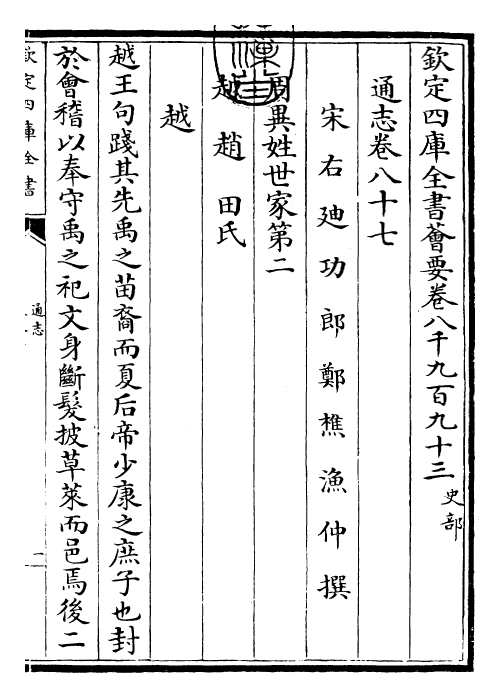 欽定四庫全書薈要卷八千九百九十三 史部
通志卷八十七
宋右迪功郎鄭樵漁仲撰
周異姓世家第二
越 趙 田氏
越
越王句踐其先禹之苗裔而夏后帝少康之庶子也封
於會稽以奉守禹之祀文身斷髮披草萊而邑焉後二
欽定四庫全書
通志